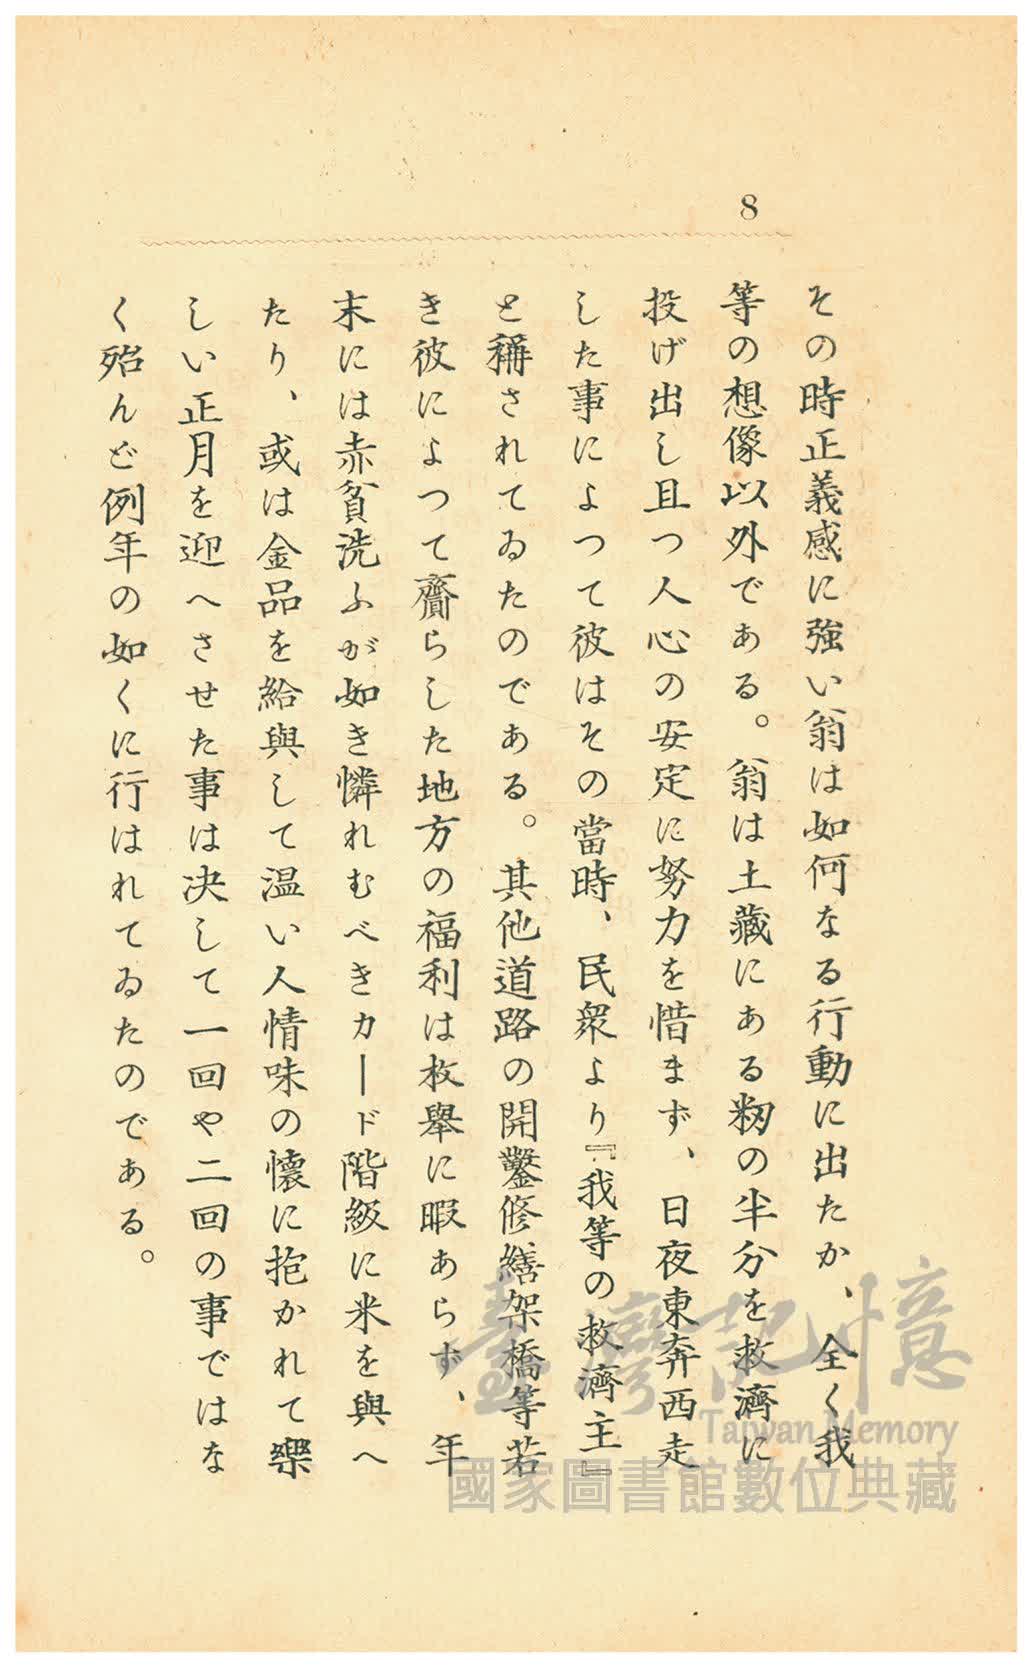 8
その時正義感に強い翁は如何なる行動に出たか、全く我
等の想像以外である。翁は土藏にある籾の半分を救濟に
投げ出し且つ人心の安定に努力を惜まず、日夜東奔西走
した事によつて彼はその當時、民衆より『我等の救濟主』
と稱されてゐたのである。其他道路の開鑿修繕架橋等若
き彼によつて齎らした地方の福利は枚擧に暇あらず、年
末には赤貧洗ふが如き憐れむべきカード階級に米を與へ
たり、或は金品を給與して温い人情味の懷に抱かれて樂
しい正月を迎へさせた事は决して一回や二回の事ではな
く殆んど例年の如くに行はれてゐたのである。
臺灣記憶
Taiwan Memory
國家圖書館數位典藏